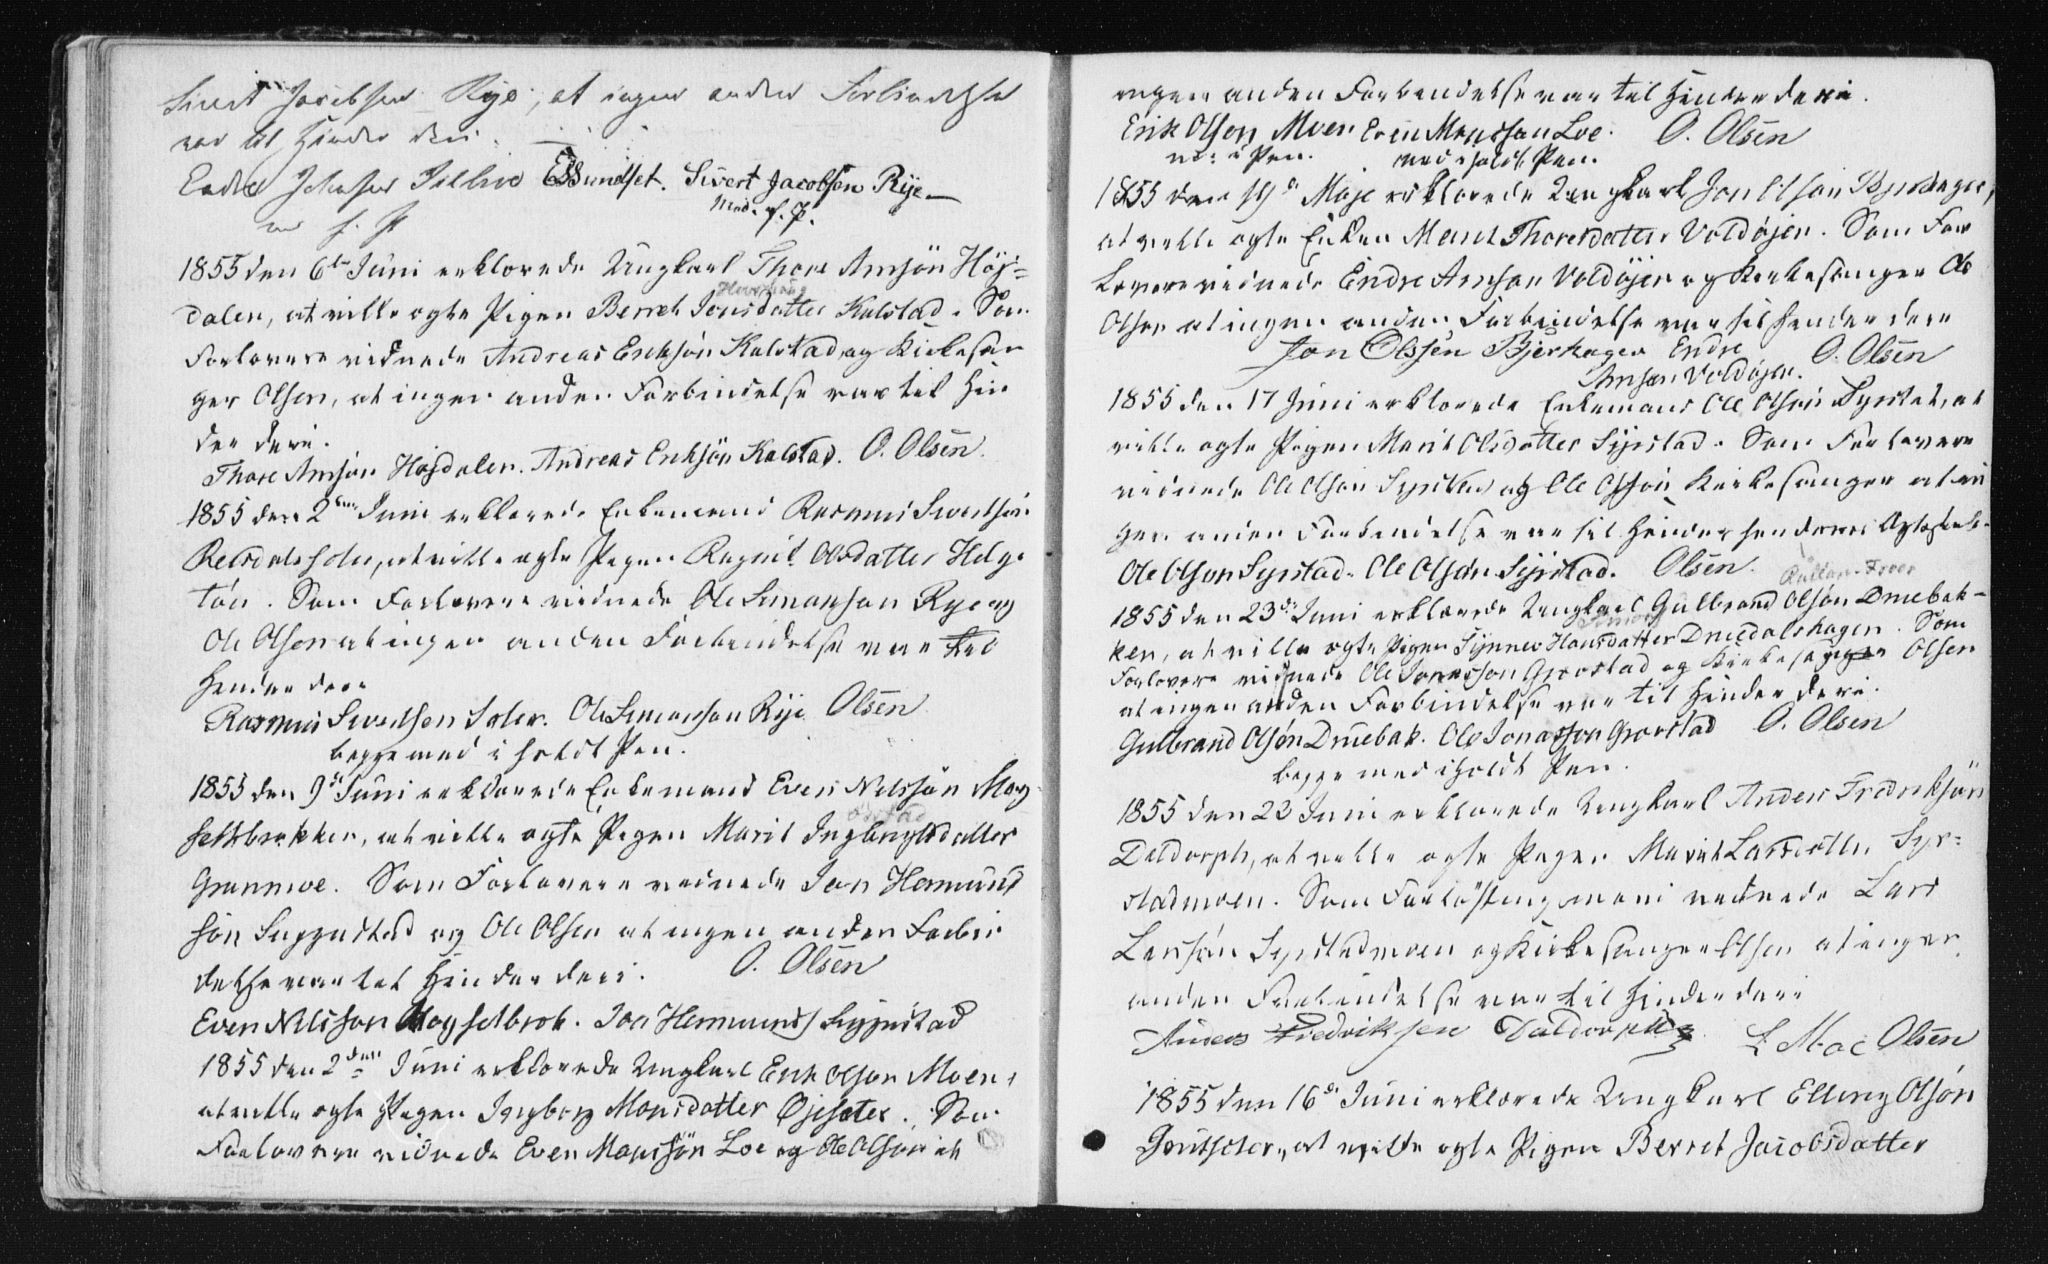 Sivert Jacobsen Rye, at ingen anden Forbindelse
var til Hinder deri.
Endre Johnsen ESSundset. Sivert Jacobsen Rije
m. f. P. Med. f. P.
1855 den 6te Juni erklærede Ungkarl Thore Arnsön Höj=
Hovshaug
dalen, at ville ægte Pigen Berret Jonsdatter Kalstad. Som
Forlovere vidnede Andreas Eriksön Kalstad og Kirkesan
ger Olsen, at ingen anden Forbindelse var til Hin
der deri.
Thore Arnsön Höjdalen. Andreas Eriksön Kalstad. O. Olsen.
1855 den 2den Juni erklærede Enkemand Rasmus Sivertsön
Reisdalssæter, at ville ægte Pigen Ragnil Olsdatter Helge
tön. Som Forlovere vidnede Ole Simonson Rye og
Ole Olsen at ingen anden Forbindelse var til
Hinder deri
Rasmus Sivertsen Sæter. Ole Simonson Rije Olsen
begge med i holdt Pen.
1855 den 9de Juni erklærede Enkemand Even Nilsson Mog
setbrækken, at ville ægte Pigen Marit Ingbrigtsdatter
Granmoe. Som Forlovere vidnede Jon Hermund
sön Syggestad og Ole Olsen at ingen anden Forbin
delse var til Hinder deri. O. Olsen
Even Nilsson Mogsetbrek. Jon Hermunds Syggestad
1855 den 2den Juni erklærede Ungkarl Erik Olson Moen,
at ville ægte Pigen Ingborg Monsdatter Öjesæter. Som
Forlovere vidnede Even Monssön Loe og Ole Olson at
ingen anden Forbindelse var til Hinder deri.
Erik Olson Moen Even Monsson Loe. O. Olsen
m: i Pen. med iholdt Pen.
1855 den 19de Maje erklærede Ungkarl Jon Olson Bjerkager,
at ville ægte Enken Marit Thoresdatter Voldöjen. Som For
lovere vidnede Endre Arnson Voldöjen og Kirkesanger Ole
Olsen at ingen anden Forbindelse var til Hinder deri
Jon Olssen Bjerkagen Endre O. Olsen
Arnsen Voldöjen.
1855 den 17 Juni erklærede Enkemand Ole Olsön Syrstad, at
ville ægte Pigen Marit Olsdatter Syrstad. Som Forlovere
vidnede Ole Olson Syrstad og Ole Olsön Kirkesanger at in
gen anden Forbindelse var til Hinder for deres Ægteskab.
Ole Olson Syrstad. Ole Olsön Syrstad. Olsen.
1855 den 23de Juni erklærede Ungkarl Gulbrand Olsön Druebak=
ken, at ville ægte Pigen Synnev Hansdatter Druedalshagen. Som
Forlovere vidnede Ole Jonasson Grovstad og Kirkesanger Olsen
at ingen anden Forbindelse var til Hinder deri.
Gulbrand Olsön Druebak. Ole Jonasson Grovstad O. Olsen
begge med iholdt Pen.
1855 den 23 Juni erklærede Ungkarl Anders Fredriksön
Daldorph, at ville ægte Pigen Marit Larsdatter Syr=
stadmoen. Som Forlöftningsmænd vidnede Lars
Larsön Syrstadmoen og Kirkesanger Olsen at ingen
anden Forbindelse var til Hinder deri
Anders Fredriksen Daldorph L Moe Olsen
1855 den 16de Juni erklærede Ungkarl Elling Olsön
Grutseter, at ville ægte Pigen Berret Jacobsdatter